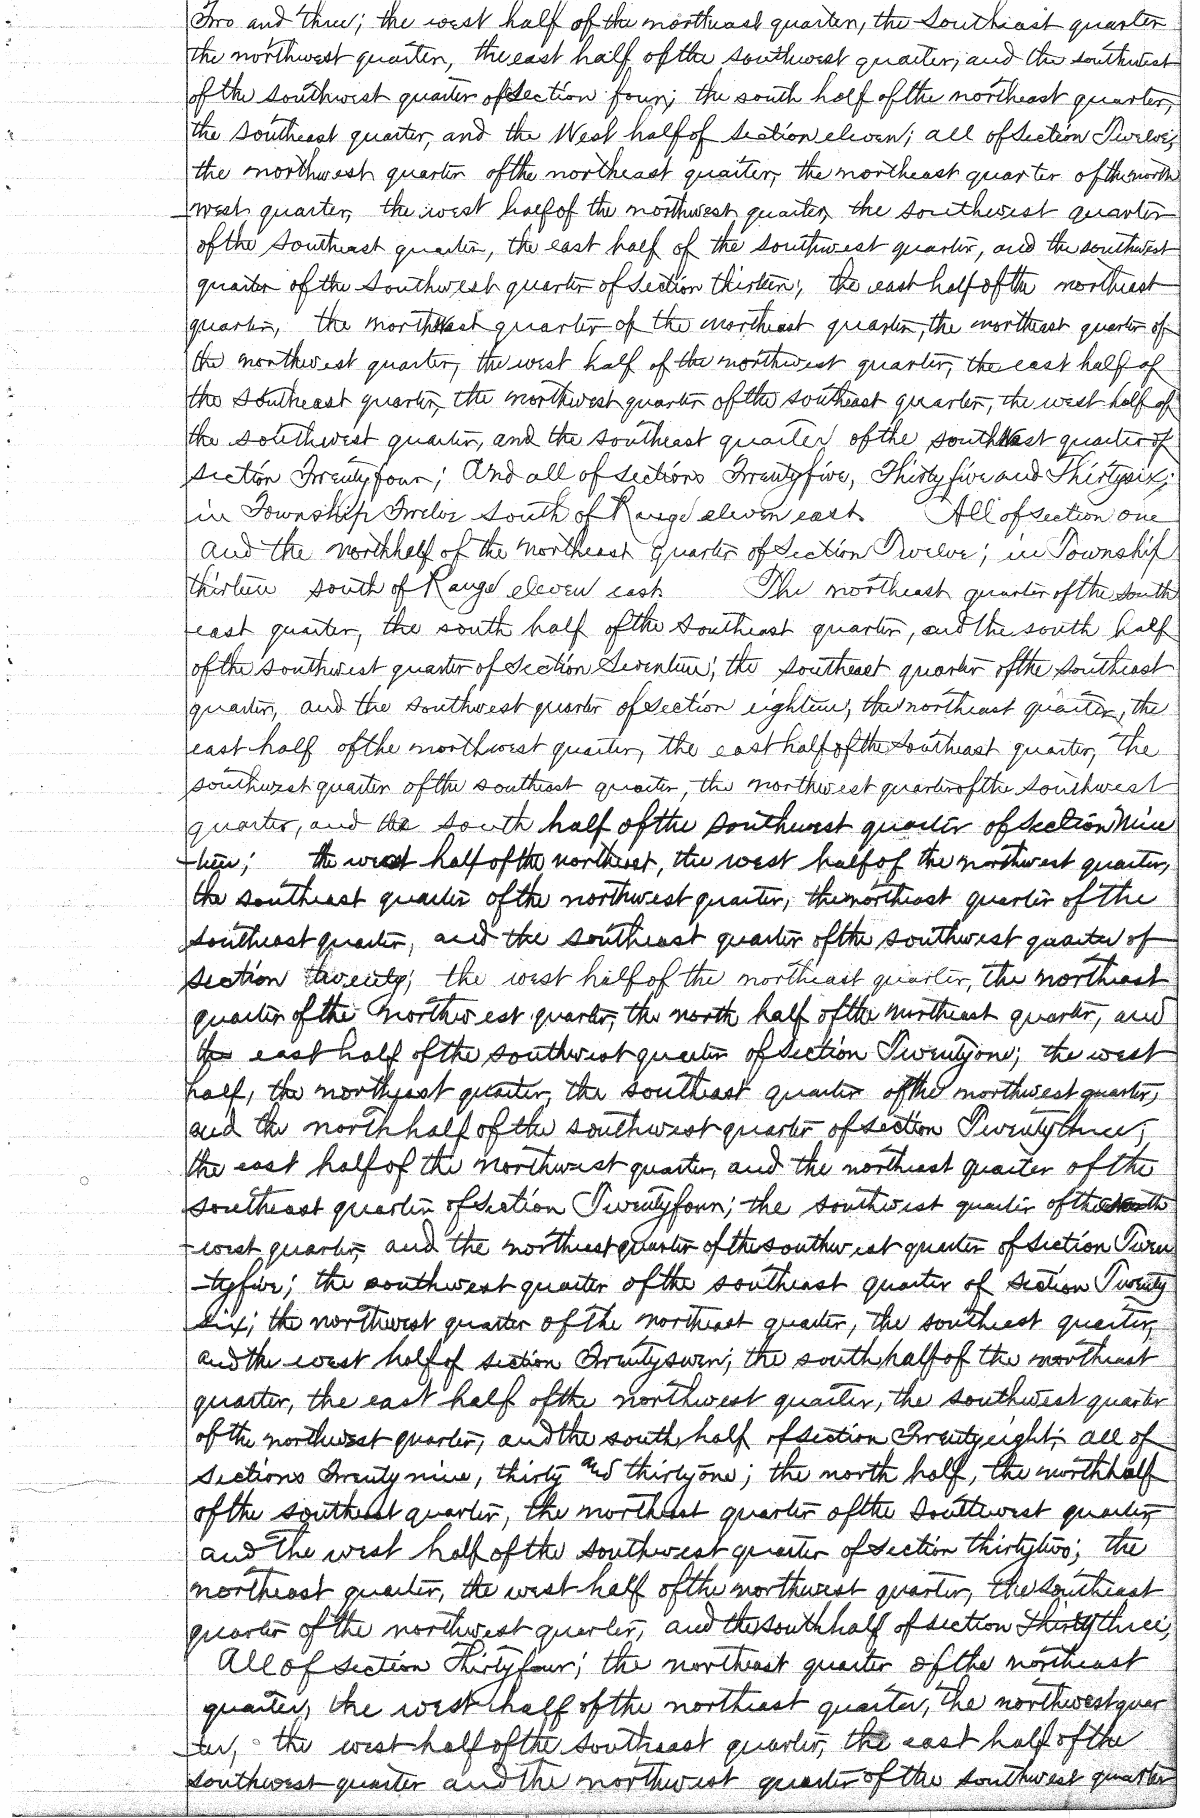 Two and three; the west half of the northeast quarter, the Southeast quarter
the northwest quarter, the east half of the southwest quarter, and the southwest
of the southwest quarter of Section four; the south half of the northeast quarter,
the southeast quarter, and the West half of section eleven; all of section Twelve;
the northwest quarter of the northeast quarter, the northeast quarter of the north
west quarter, the west half of the northwest quarter, the southwest quarter
of the southeast quarter, the east half of the southwest quarter, and the southwest
quarter of the southwest quarter of section thirteen; the east half of the northeast
quarter, the northwest quarter of the northeast quarter, the northeast quarter of
the northwest quarter, the west half of the northwest quarter, the east half of
the southeast quarter, the northwest quarter of the southeast quarter, the west half of
the southwest quarter, and the southeast quarter of the southwest quarter of
section Twentyfour; And all of sections Twentyfive, Thirtyfive and Thirtysix;
in Township Twelve south of Range eleven east. All of section one
and the north half of the northeast quarter of section Twelve; in Township
thirteen south of Range eleven east. The northeast quarter of the south
east quarter, the south half of the southeast quarter, and the south half
of the southwest quarter of Section Seventeen; the southeast quarter of the southeast
quarter, and the southwest quarter of section eighteen; the northeast quarter, the
east half of the northwest quarter, the east half of the southeast quarter, the
southwest quarter of the southeast quarter, the northwest quarter of the southwest
quarter, and the south half of the southwest quarter of section Nine
-teen; the west half of the northeast, the west half of the northwest quarter,
the southeast quarter of the northwest quarter, the northeast quarter of the
southeast quarter, and the southeast quarter of the southwest quarter of
section twenty; the west half of the northeast quarter, the northeast
quarter of the northwest quarter, the north half of the northeast quarter, and
the east half of the southwest quarter of section Twentyone; the west
half, the northeast quarter, the southeast quarter of the northwest quarter,
and the north half of the southwest quarter of section Twentythree;
the east half of the northwest quarter, and the northeast quarter of the
southeast quarter of section Twentyfour; the southwest quarter of the north
west quarter, and the northeast quarter of the southwest quarter of section Twen
-tyfive; the southwest quarter of the southeast quarter of section Twenty
six; the northwest quarter of the northeast quarter, the southeast quarter,
and the west half of section Twentyseven; the south half of the northeast
quarter, the east half of the northwest quarter, the southwest quarter
of the northwest quarter, and the south half of section Twentyeight; all of
sections Twentynine, thirty and thirtyone; the north half, the north half
of the southeast quarter, the northeast quarter of the southwest quarter
and the west half of the southwest quarter of section thirtytwo; the
northeast quarter, the west half of the northwest quarter, the southeast
quarter of the northwest quarter, and the south half of section thirtythree;
All of section Thirtyfour; the northeast quarter of the northeast
quarter, the west half of the northeast quarter, the northwest quar
-ter, the west half of the southeast quarter, the east half of the
southwest quarter and the northwest quarter of the southwest quarter